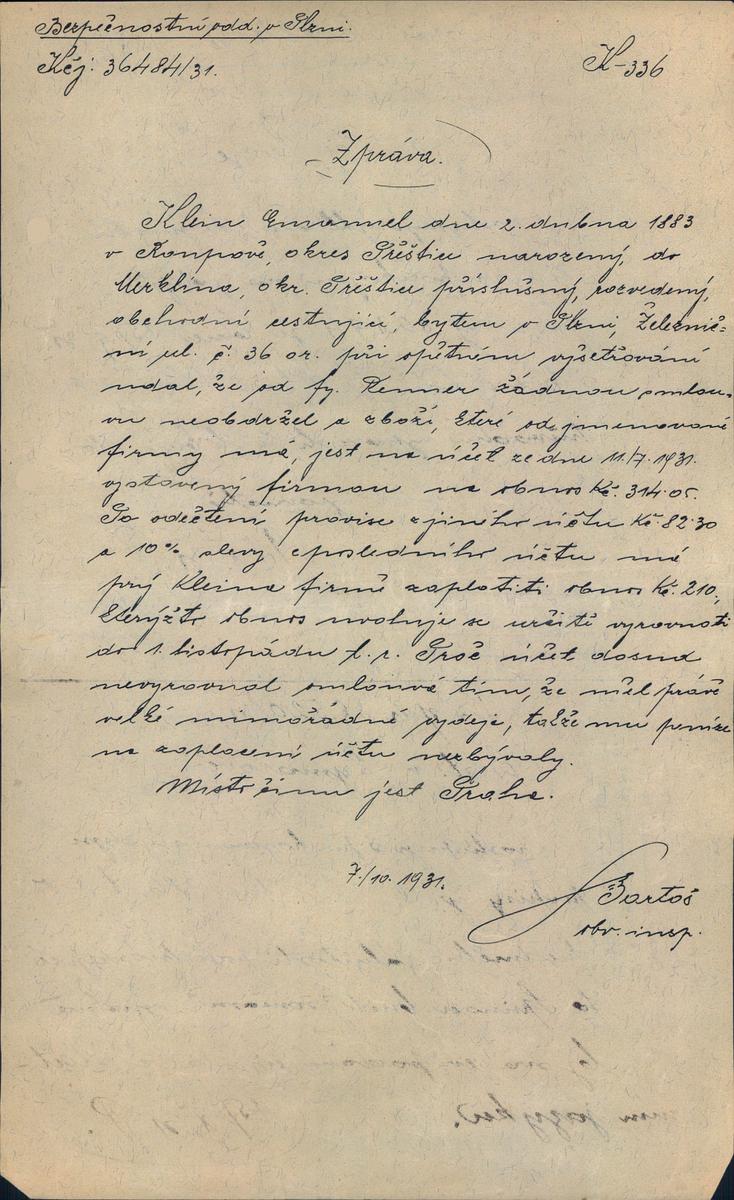 Bezpečnostní odd. v Plzni.
Kčj: 36484/31.
K-336
Zpráva.
Klein Emannel dne 2. dubna 1883
v Roupově, okres Přeštice narozený, do
Merklína, okr. Přeštice příslušný, rozvedený,
obchodní cestující, bytem v Plzni, Železnič=
ní ul. č. 36 or. při opětném vyšetřování
udal, že od fy. Renner žádnou omlou-
vu neobdržel a zboží, které od jmenované
firmy má, jest na účet ze dne 11./7. 1931.
vystavený firmou na obnos Kč. 314.05.
Po odečtení provise z jiného účtu Kč. 82.30
a 10% slevy z posledního účtu má
prý Kleina firmě zaplatiti obnos Kč. 210.,
kterýžto obnos uvoluje se určitě vyrovnati
do 1. listopádu t. r. Proč účet dosud
nevyrovnal omlouvá tím, že měl právě
velké mimořádné vydeje, takže mu peníze
na zaplacení účtu nezbývaly.
Místo činu jest Praha.
7./10. 1931.
Bartoš
obv. insp.